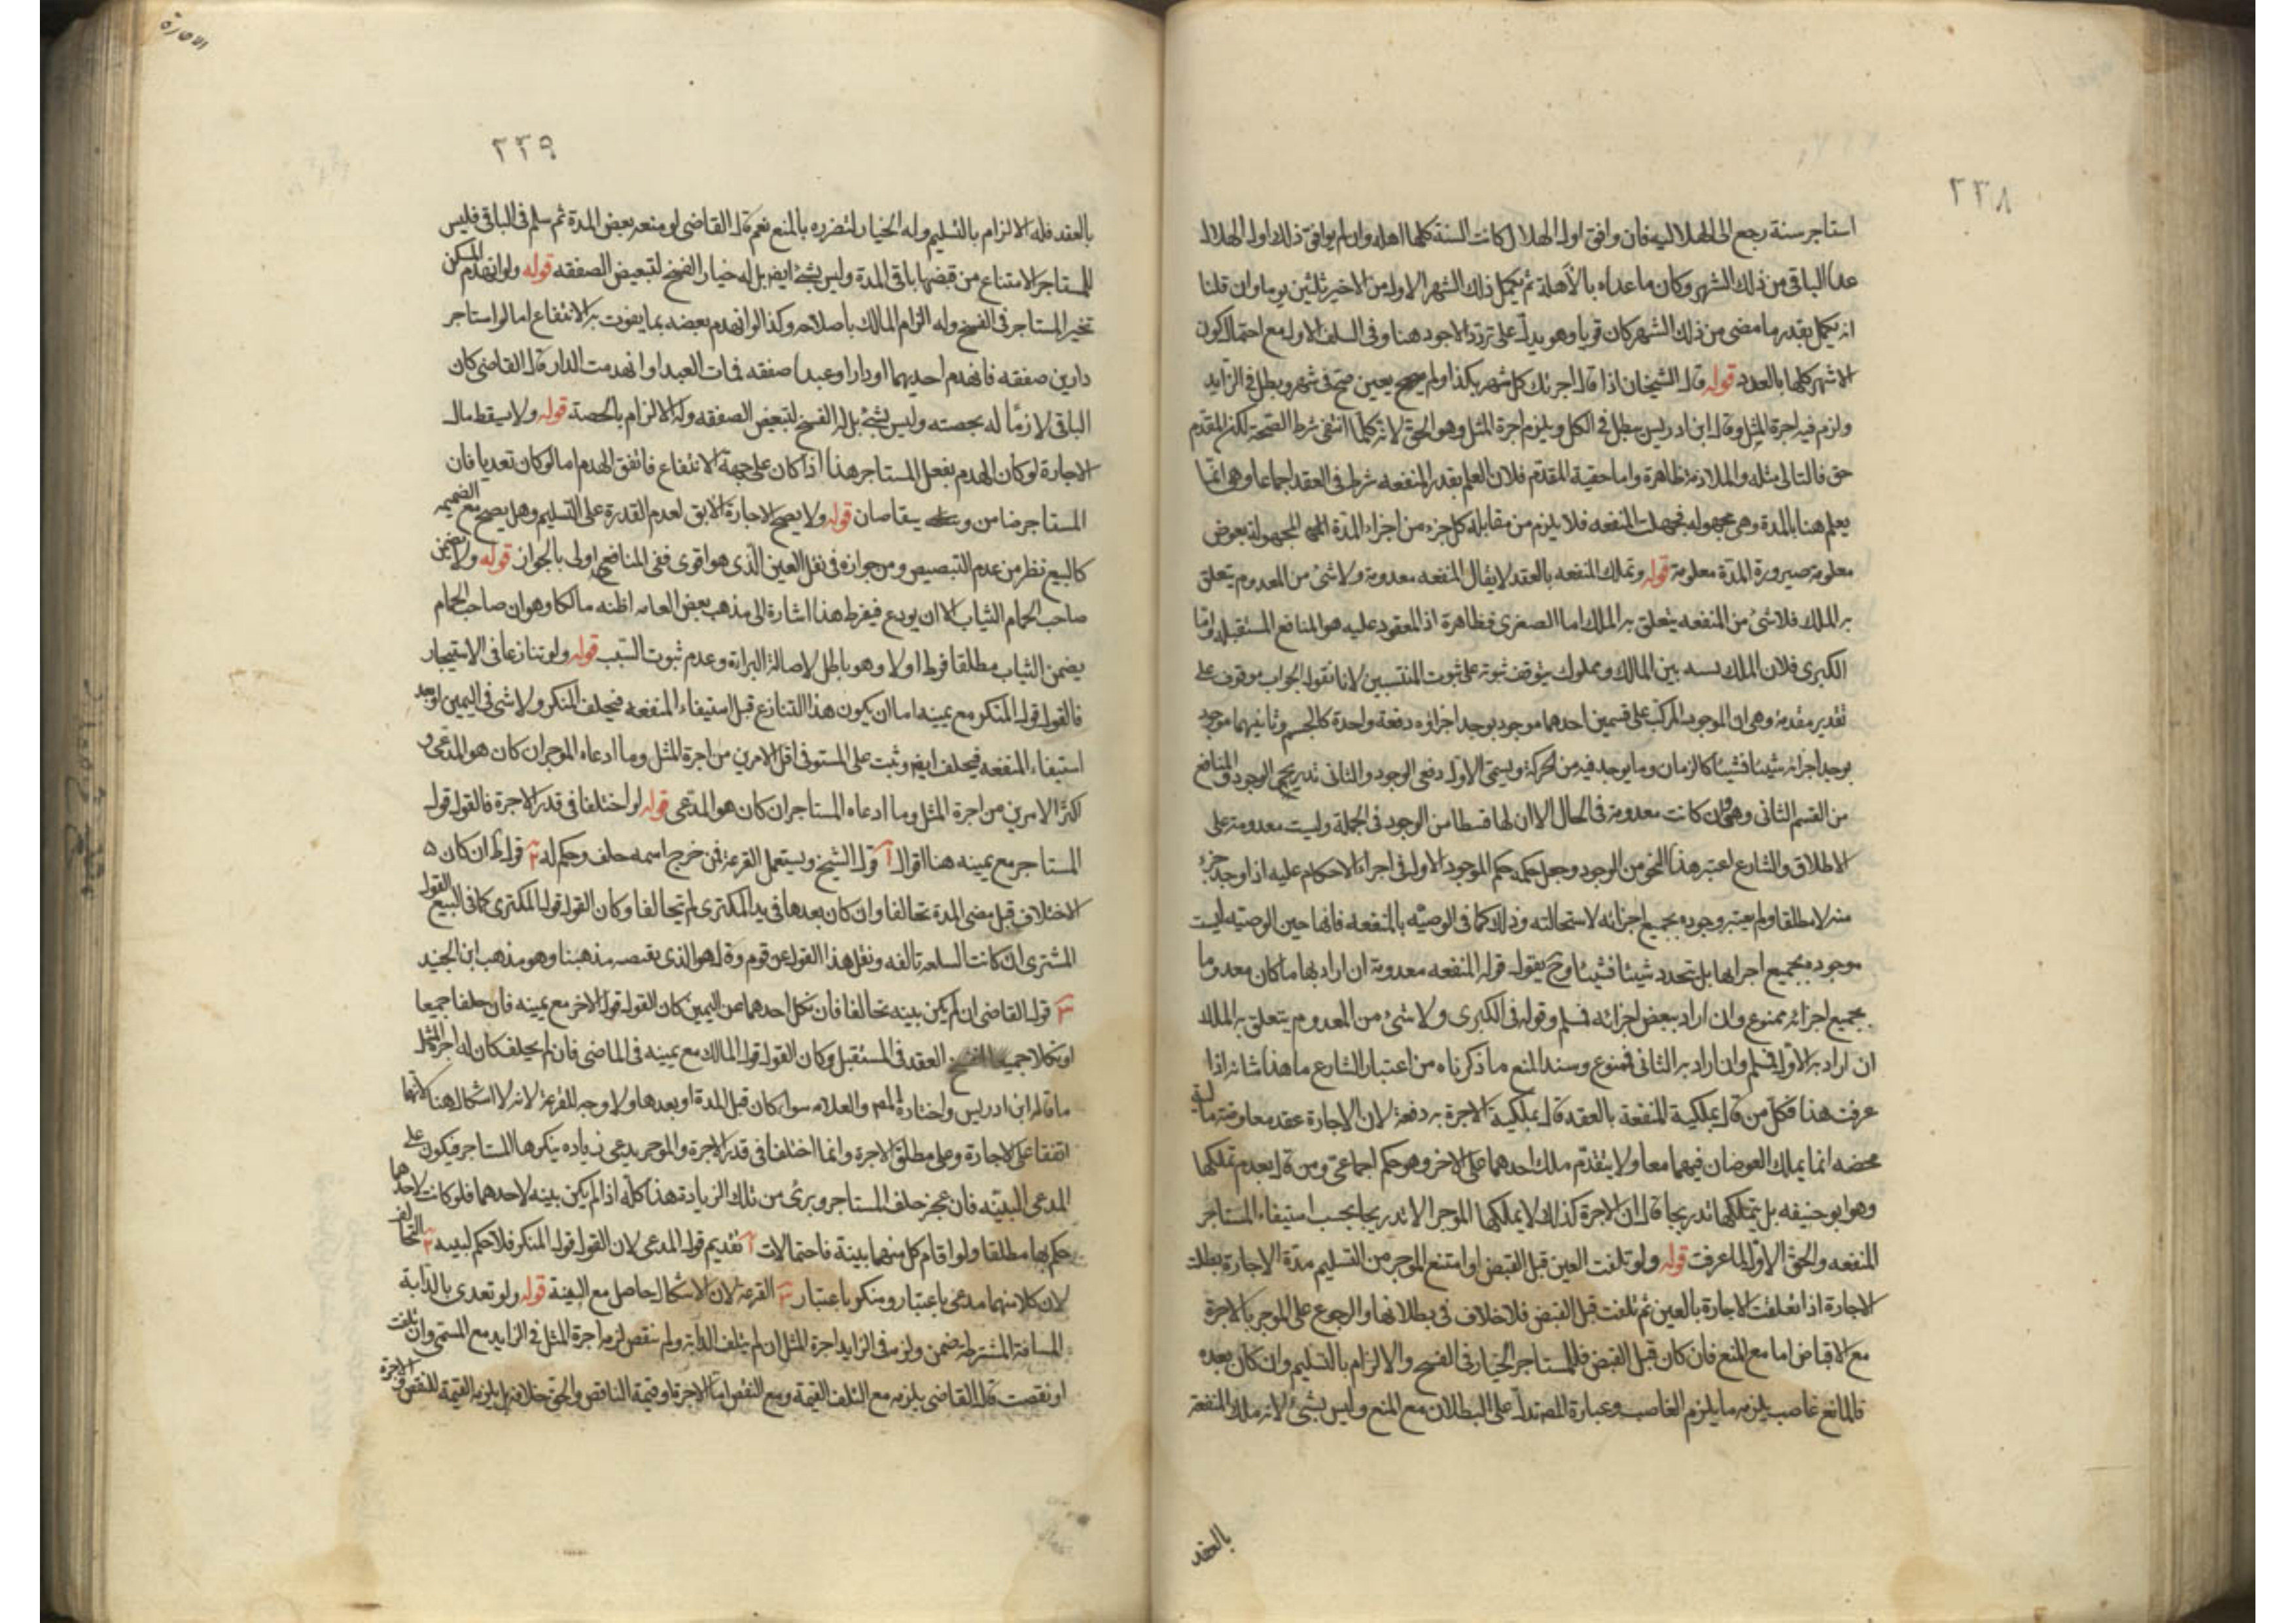 ٢٣٨
استاجر سنة رجع الى الهلاليه فان وافق اول الهلال كانت السنة كلها اهله وان لم يوافق ذلك اول الهلال
عدا الباقى من ذلك الشهر وكان ما عداه بالأهلة ثم يكمل ذلك الشهر الاول من الاخير ثلثين يوما وان قلنا
انه يكمل بقدر ما مضى من ذلك الشهر كان قويا وهو يدل على تردد الاجود هنا وفى السلف الاول مع احتمال كون
الاشهر كلها بالعدد قوله قال الشيخان اذا قال اجرتك كل شهر بكذا ولم يعين صح فى شهر وبطل فى الزايد
ولزم فيه اجرة المثل وقال ابن ادريس يبطل فى الكل ويلزم اجرة المثل وهو الحق لانه كلما انتفى شرط الصحة لكن المقدم
حق فالتالى مثله والملازمة ظاهرة واما حقية المقدم فلان العلم بقدر المنفعه شرط فى العقد اجماعا وهى انما
يعلم هنا بالمدة وهى مجهوله فجهلت المنفعه فلا يلزم من مقابلة كل جزء من اجزاء المدة المجهولة بعوض
معلومة صيرورة المدة معلومة قوله وتملك المنفعه بالعقد لا يقال المنفعه معدومة ولا شئ من المعدوم يتعلق
به الملك فلا شئ من المنفعه يتعلق به الملك اما الصغرى فظاهرة اذ المعقود عليه هو المنافع المستقبله واما
الكبرى فلان الملك نسبه بين المالك ومملوك يتوقف ثبوته على ثبوت المنتسبين لانا نقول الجواب موقوف على
تقدير مقدمة وهى ان الموجود المركب على قسمين احدهما موجود يوجد اجزاؤه دفعة واحدة كالجسم وثانيهما موجود
يوجد اجزائه شيئا فشيئا كالزمان وما يوجد فيه من الحركة ويسمى الاول دفعى الوجود والثانى تدريجى الوجود والمنافع
من القسم الثانى وهى وان كانت معدومة فى الحال الا ان لها قسطا من الوجود فى الجملة وليست معدومة على
الاطلاق والشارع اعتبر هذا النحو من الوجود وجعل حكمه حكم الموجود الاول فى اجراء الاحكام عليه اذا وجد جزء
منه لا مطلقا ولم يعتبر وجوده بجميع اجزائه لاستحالته وذلك كما فى الوصيه بالمنفعه فانها حين الوصيه ليست
موجوده بجميع اجزائها بل تتجدد شيئا فشيئا وح يقول قوله المنفعه معدومة ان اراد بها ما كان معدوما
بجميع اجزائه ممنوع وان اراد ببعض اجزائه فسلم وقوله فى الكبرى ولا شئ من المعدوم يتعلق به الملك
ان اراد به الاول فسلم وان اراد به الثانى فممنوع وسند المنع ما ذكرناه من اعتبار الشارع ما هذا شانه اذا
عرفت هذا فكل من قال بملكية المنفعة بالعقد قال بملكية الاجرة به دفعة لان الاجارة عقد معاوضة
محضه انما يملك العوضان فيهما معا ولا يتقدم ملك احدهما على الاخر وهو حكم اجماعى ومن قال بعدم تملكها
وهو ابو حنيفه بل يتملكها تدريجا قال ان الاجرة كذلك لا يملكها الموجر الا تدريجا بحسب استيفاء المستاجر
المنفعه والحق الاول لما عرفت قوله ولو تلفت العين قبل القبض او امتنع الموجر من التسليم مدة الاجارة بطلت
الاجارة اذا تعلقت الاجارة بالعين ثم تلفت قبل القبض فلا خلاف فى بطلانها والرجوع على الموجر بالاجرة
مع الاقباض اما مع المنع فان كان قبل القبض فللمستاجر الخيار فى الفسخ والالزام بالتسليم وان كان بعده
فالمانع غاصب يلزمه ما يلزم الغاصب وعبارة المص تدل على البطلان مع المنع وليس بشئ لانه ملك المنفعة
بالعقد
الاجارة
٢٣٩
بالعقد فله الالزام بالتسليم وله الخيار لتضرره بالمنع نعم قال القاضى لو منعه بعض المدة ثم سلم فى الباقى فليس
للمستاجر الامتناع من قبضها باقى المدة وليس بشئ ايضا بل له خيار الفسخ لتبعيض الصفقه قوله ولو انهدم المسكن
تخير المستاجر فى الفسخ وله الزام المالك باصلاحه وكذا لو انهدم بعضه بما يفوت به الانتفاع اما لو استاجر
دارين صفقه فانهدم احديهما او دارا وعبدا صفقه فمات العبد او انهدمت الدار قال القاضى كان
الباقى لازما له بحصته وليس بشئ بل له الفسخ لتبعيض الصفقه وله الالزام بالحصة قوله ولا يسقط مال
الاجارة لو كان الهدم بفعل المستاجر هذا اذا كان على جهة الانتفاع فاتفق الهدم اما لو كان تعديا فان
المستاجر ضامن و يتقاصان قوله ولا يصح اجارة الآبق لعدم القدرة على التسليم وهل يصح مع الضميمه
كالبيع نظر من عدم التنصيص ومن جوازه فى نقل العين الذى هو اقوى ففى المنافع اولى بالجواز قوله ولا يضمن
صاحب الحمام الثياب الا ان يودع فيفرط هذا اشارة الى مذهب بعض العامه اظنه مالكا وهو ان صاحب الحمام
يضمن الثياب مطلقا فرط اولا وهو باطل لاصالة البراءة وعدم ثبوت السبب قوله ولو تنازعا فى الاستيجار
فالقول قول المنكر مع يمينه اما ان يكون هذا التنازع قبل استيفاء المنفعه فيحلف المنكر ولا شئ فى اليمين او بعد
استيفاء المنفعه فيحلف ايضا وثبت على المستوفى اقل الامرين من اجرة المثل وما ادعاه الموجر ان كان هو المدعى و
اكثر الامرين من اجرة المثل وما ادعاه المستاجر ان كان هو المدعى قوله لو اختلفا فى قدر الاجرة فالقول قول
المستاجر مع يمينه هنا اقوال آ قول الشيخ ويستعمل القرعة فمن خرج اسمه حلف وحكم له ٢ قوله ان كان
الاختلاف قبل مضى المدة تحالفا وان كان بعدها فى يد المكترى لم يتحالفا وكان القول قول المكترى كما فى البيع القول
المشترى ان كانت السلعه تالفه ونقل هذا القول عن قوم وقال هو الذى يقتضيه مذهبنا وهو مذهب ابن الجنيد
٣ قول القاضى ان لم يكن بينه تحالفا فان نكل احدهما عن اليمين كان القول قول الاخر مع يمينه فان حلفا جميعا
او نكلا جميعا انفسخ العقد فى المستقبل وكان القول قول المالك مع يمينه فى الماضى فان لم يحلف كان له اجرة المثل
ما قاله ابن ادريس واختاره المص والعلامه سواء كان قبل المدة او بعدها ولا وجه للقرعة لانه لا اشكال هنا لانهما
اتفقا على الاجارة وعلى مطلق الاجرة وانما اختلفا فى قدر الاجرة والموجر يدعى زياده ينكرها المستاجر فيكون على
المدعى البينه فان عجز حلف المستاجر وبرئ من تلك الزيادة هذا كله اذا لم يكن بينه لاحدهما فلو كانت لاحدهما
حكم بها مطلقا ولو اقام كل منهما بينة فاحتمالات آ تقديم قول المدعى لان القول قول المنكر فلا حكم لبينه ٢ التحالف
لان كلا منهما مدعى باعتبار ومنكر باعتبار ٣ القرعة لان الاشكال حاصل مع البينة قوله ولو تعدى بالدابة
المسافة المشترطة ضمن ولزمه فى الزايد اجرة المثل ان لم يتلف الدابة ولم تنقص لزمه اجرة المثل فى الزايد مع المسمى وان تلفت
او نقصت قال القاضى يلزمه مع التلف القيمة ومع النقص اما الاجرة او قيمة الناقص والحق خلافه بل يلزمه القيمة للنقص والاجرة